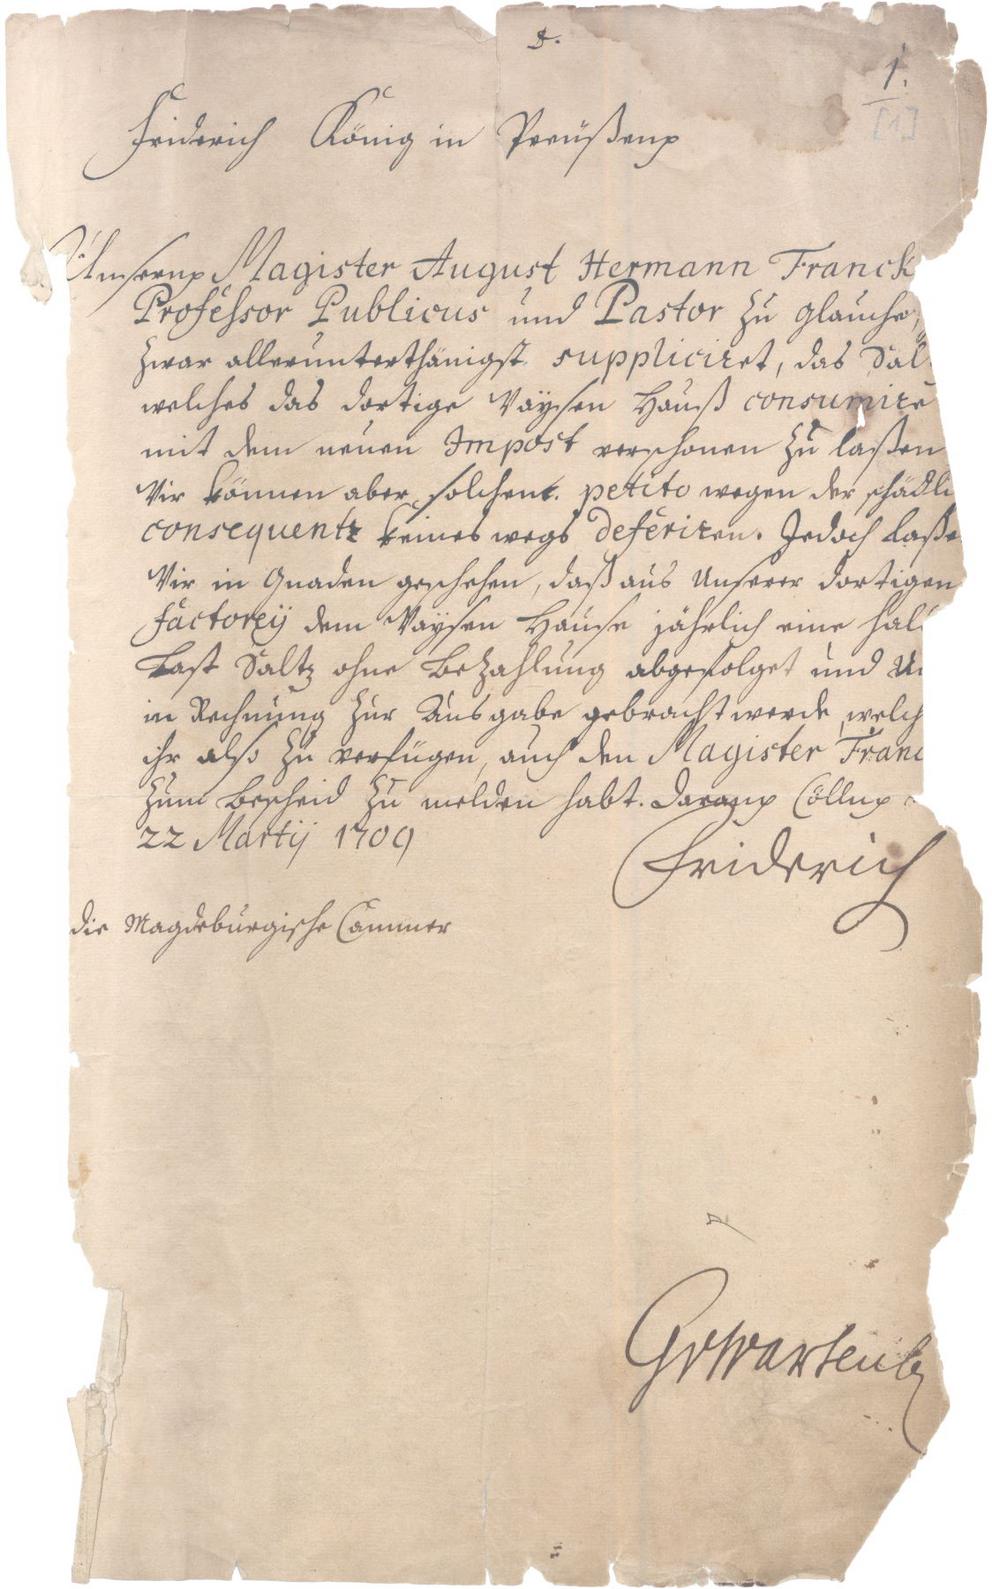 1.
[1]
Friderich König in Preüßen
Magister August Hermann Franck
Professor Publicus und Pastor zu Glauche,
zwar allerunterthänigst suppliciret, das Sal
welches das dortige Waysen Hauß consumire
mit dem neuen Impost verschonen zu laßen
Wir können aber solchem petito wegen der schädli
consequentz keines wegs deferiren. Jedoch laße
Wir in Gnaden geschehen, daß aus Unserer dortigen
Factoreÿ dem Waysen Hause jährlich eine hal
Last Saltz ohne Bezahlung abgefolget und
in Rechnung zur Ausgabe gebracht werde, welch
ihr also zu verfügen, auch den Magister Franc
zum Bescheid zu melden habt. Cölln
22 Martij 1709
Friderich
die Magdeburgische Cammer
GvWartenb